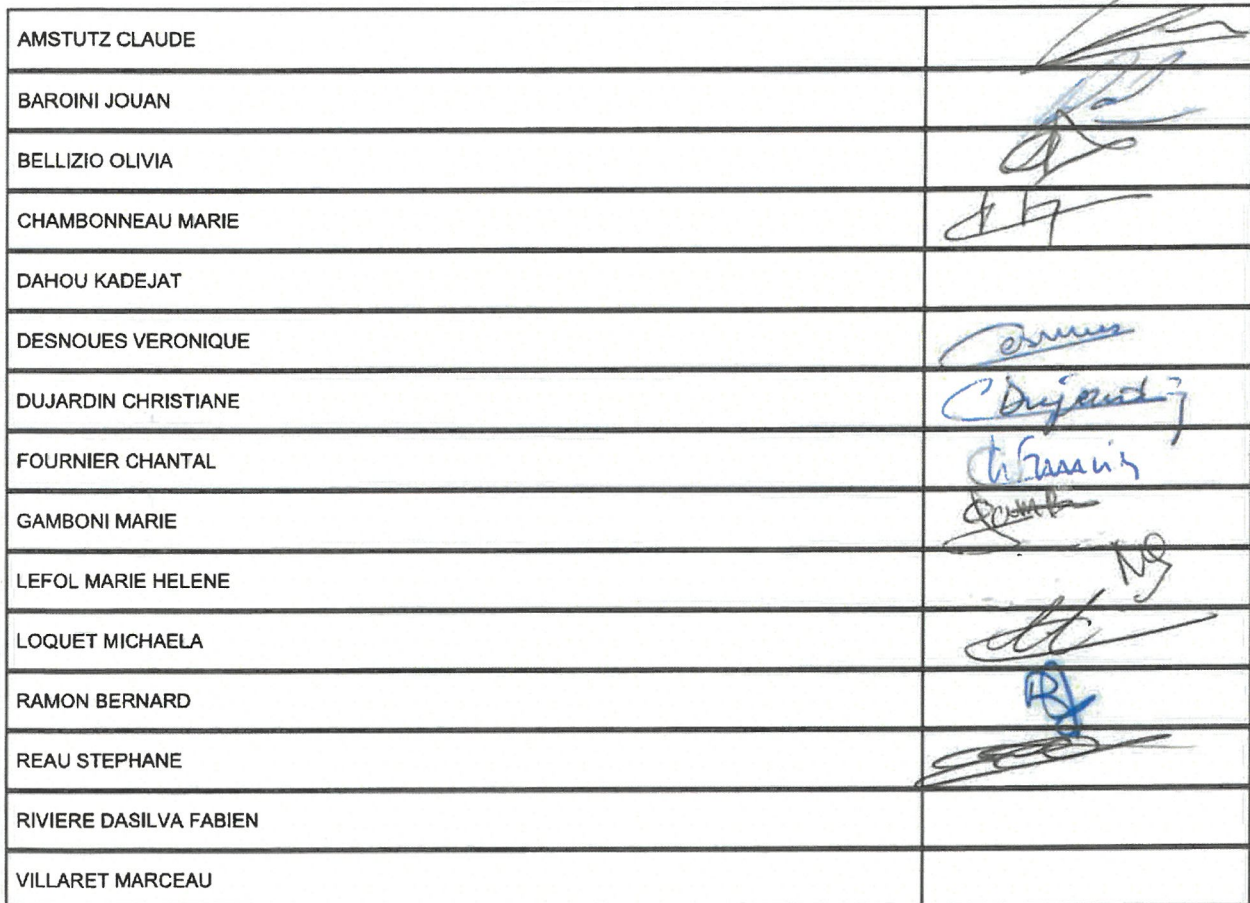 AMSTUTZ CLAUDE
BAROINI JOUAN
BELLIZIO OLIVIA
CHAMBONNEAU MARIE
DAHOU KADEJAT
DESNOUES VERONIQUE
DUJARDIN CHRISTIANE
C Dujardin
FOURNIER CHANTAL
GAMBONI MARIE
LEFOL MARIE HELENE
LOQUET MICHAELA
RAMON BERNARD
REAU STEPHANE
RIVIERE DASILVA FABIEN
VILLARET MARCEAU